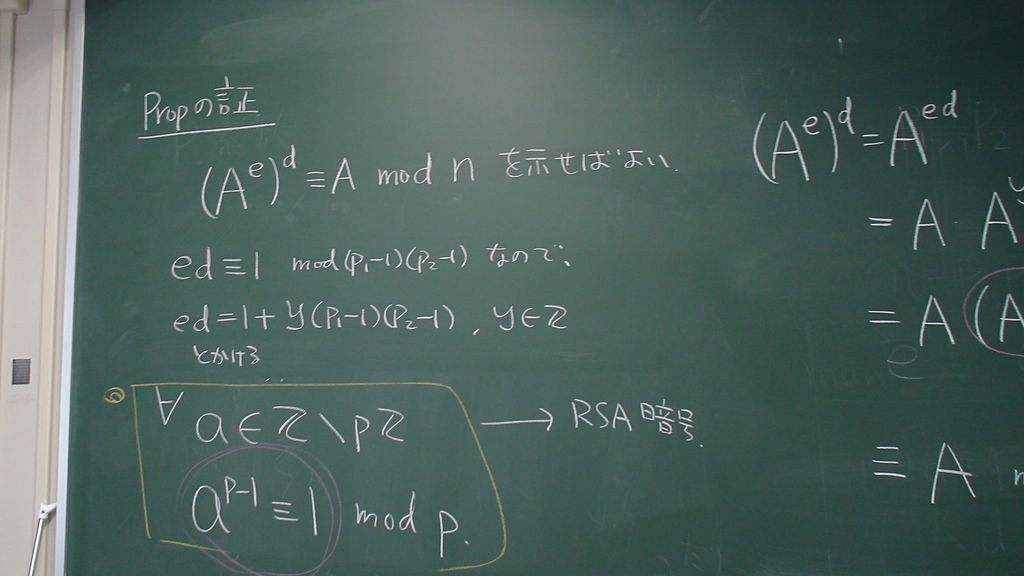 Propの証
(A^e)^d ≡ A mod n を示せばよい.
ed ≡ 1 mod (p₁-1)(p₂-1) なので、
ed = 1 + y(p₁-1)(p₂-1), y ∈ ℤ
とかける
∀a ∈ ℤ \ pℤ → RSA暗号.
a^{p-1} ≡ 1 mod p.
(A^e)^d = A^{ed}
= A · A^y
= A (A
≡ A